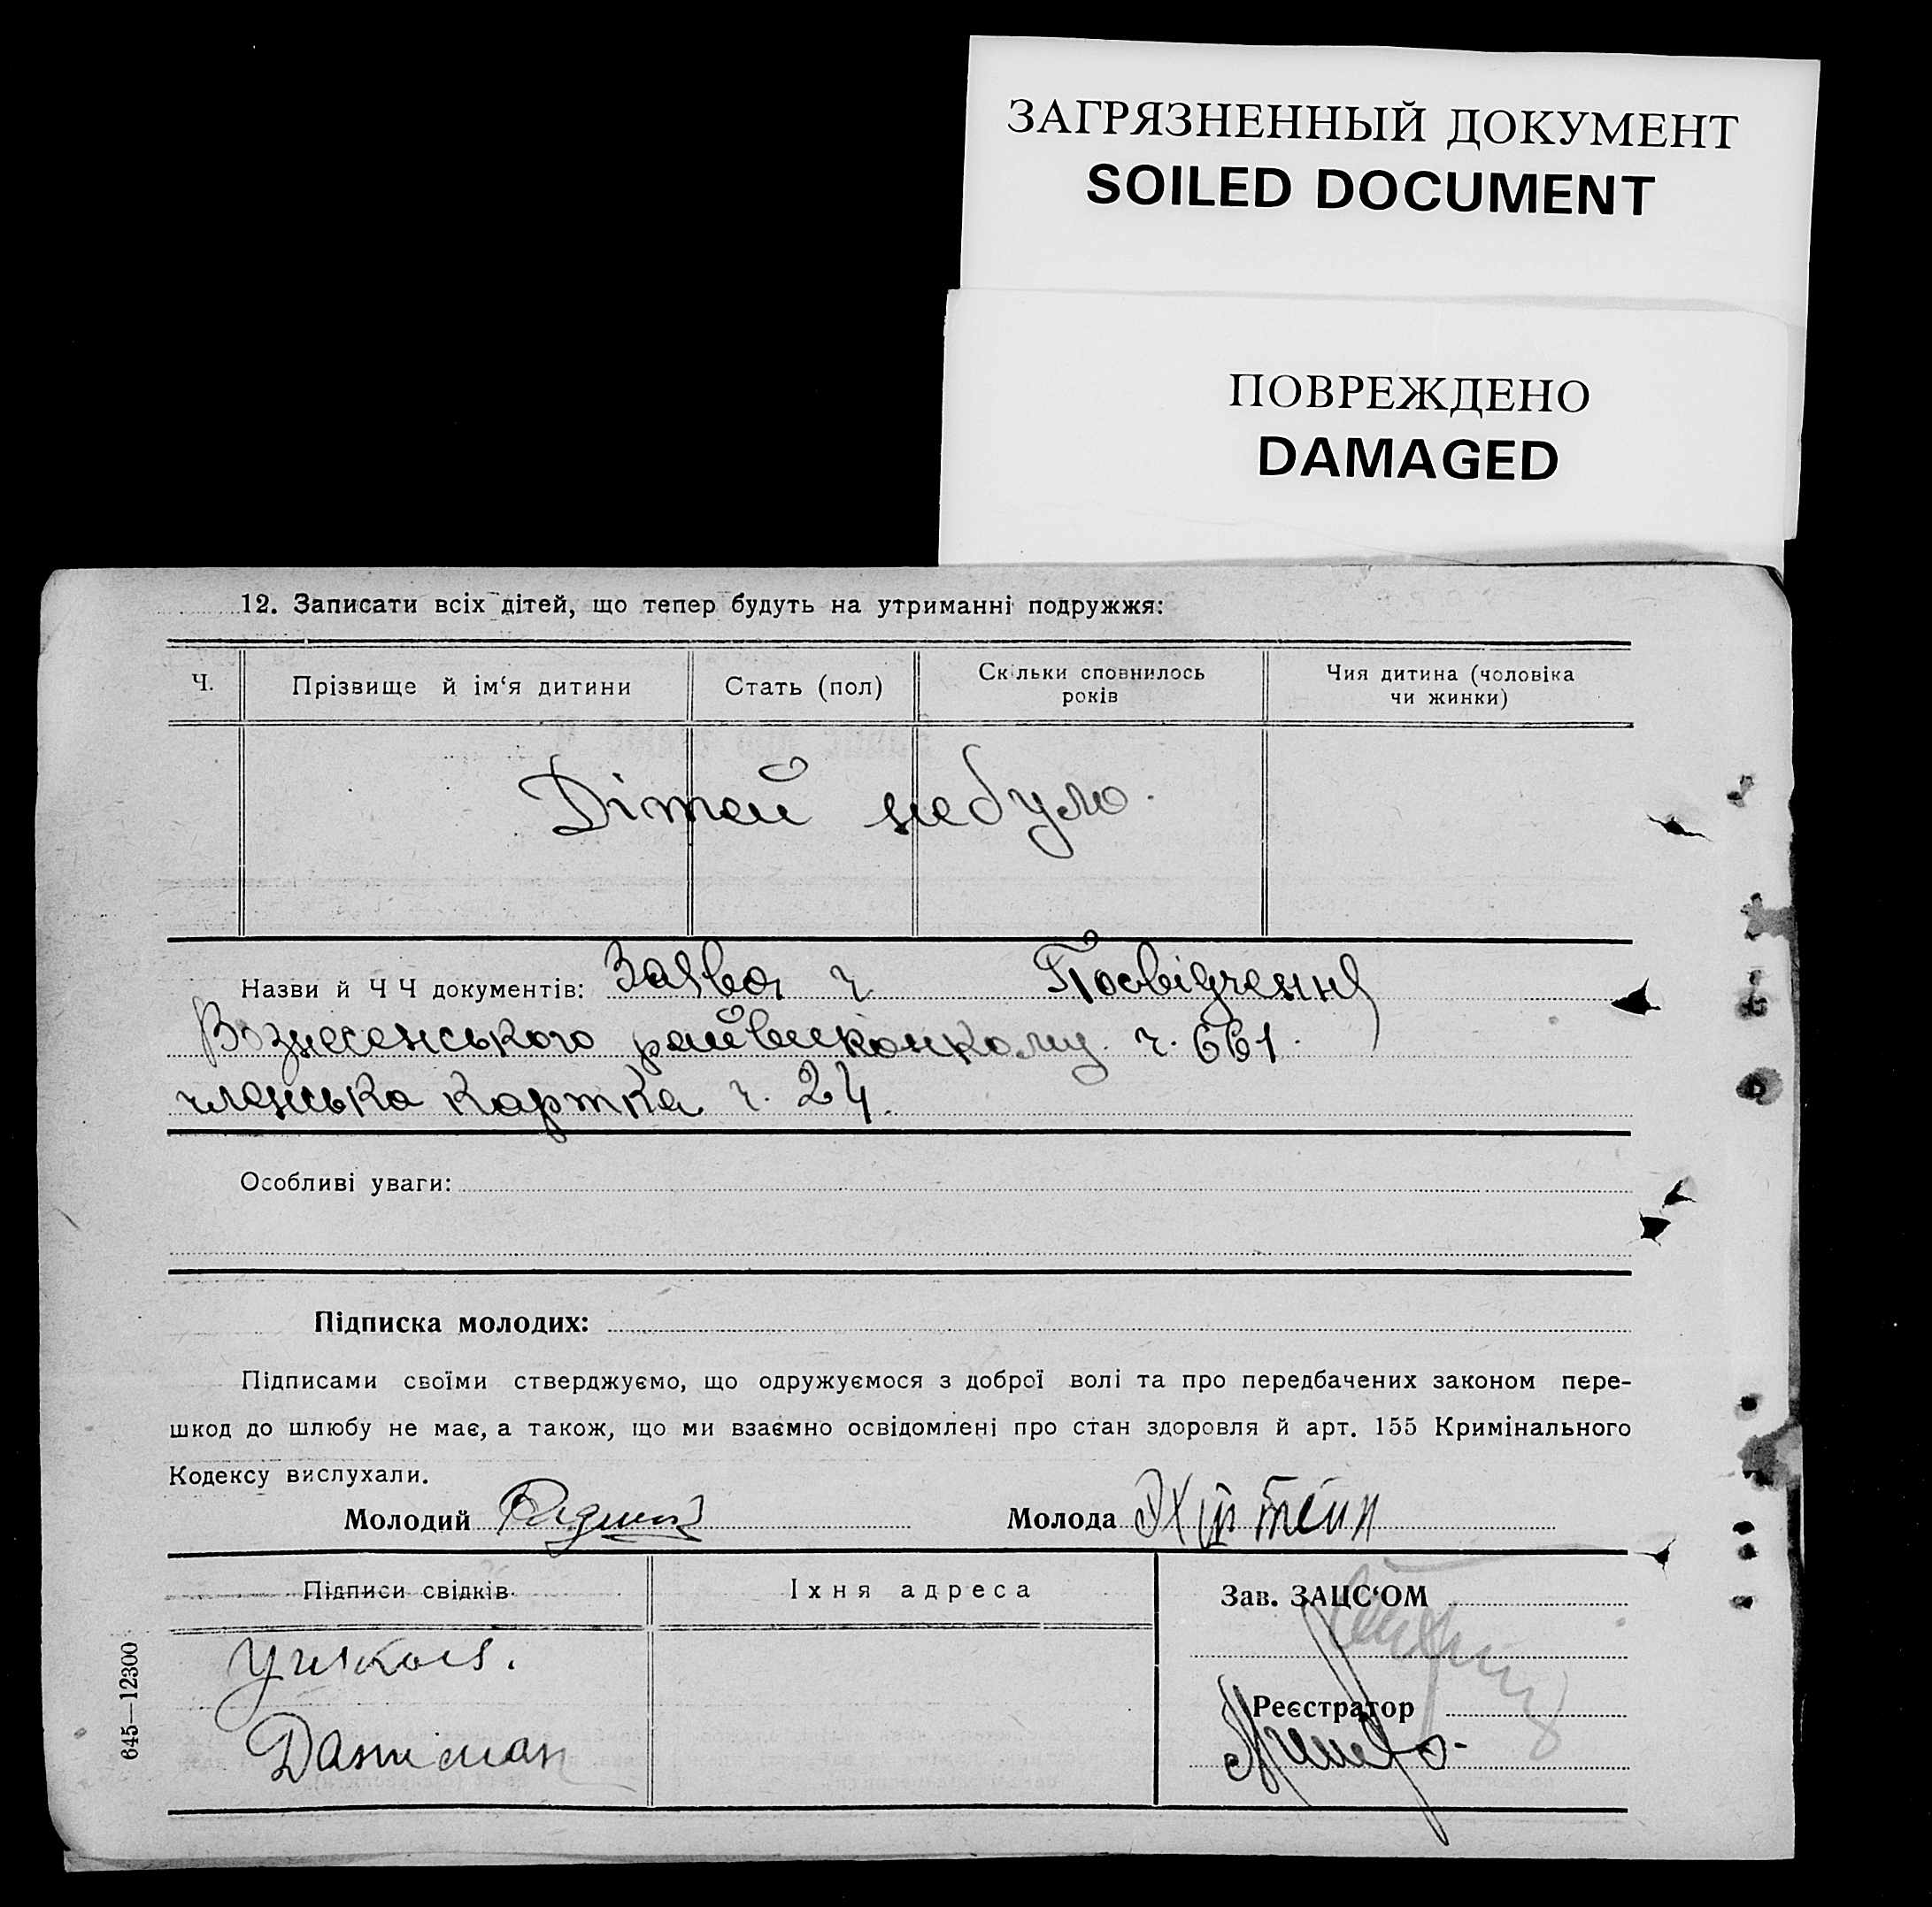 ЗАГРЯЗНЕННЫЙ ДОКУМЕНТ
SOILED DOCUMENT
ПОВРЕЖДЕНО
DAMAGED
12. Записати всіх дітей, що тепер будуть на утриманні подружжя:
Ч. Прізвище й ім‘я дитини Стать (пол) Скільки сповнилось років Чия дитина (чоловіка чи жинки)
Дітей небуло.
Назви й Ч Ч документів: Заява ч Посвідчення
Вознесенського райвиконкому ч. 661.
членська картка ч. 24.
Особливі уваги:
Підписка молодих:
Підписами своїми стверджуємо, що одружуємося з доброї волі та про передбачених законом пере-
шкод до шлюбу не має, а також, що ми взаємно освідомлені про стан здоровля й арт. 155 Кримінального
Кодексу вислухали.
Молодий Молода
Підписи свідків Іхня адреса Зав. ЗАЦС‘ОМ
Реєстратор
645—12300